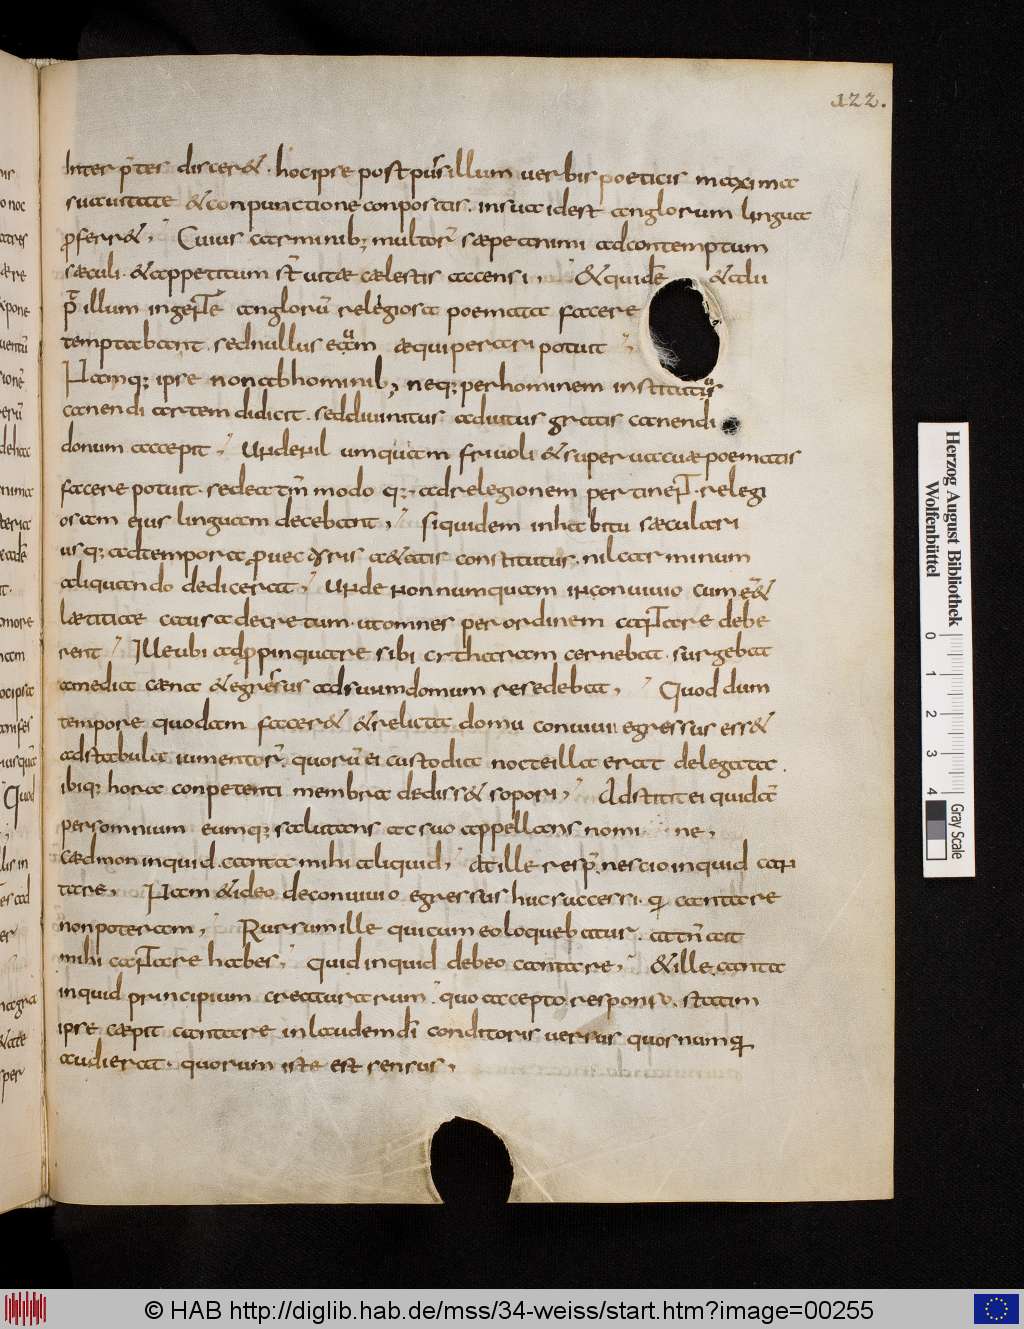 122.
Interp̄tes discer&. hoc ipse post pus̄illum uerbis poeticis maxima
suauitate & conpunctione conpositis. in sua id est anglorum lingua
proferr&; Cuius carminib; multor̄ sæpe animi ad contemptum
sæculi. & appetitum sr̄ uitæ cælestis accensi; & quidē & alii
p̄ illum in gente anglorū religiosa poemata facere
temptabant. sed nullus eam æquiperari potuit;
Namq; ipse non ab hominib; neq; per hominem institutus
canendi artem didicit. sed diuinitus adiutus gratis canendi
donum accepit; Unde nil umquam friuoli & superuacuæ poematis
facere potuit. sed ea tm̄ modo q; ad relegionem pertinent. relegi
osam eius linguam decebant; Siquidem in habitu sæculari
usq; ad tempora prouectioris a&atis constitutus. nil carminum
aliquando dedicerat; Unde nonnumquam in conuiuio cum ē&
lætitiæ causa decretum. ut omnes per ordinem cantare debe
rent; Ille ubi adpropinquare sibi citharam cernebat. surgebat
a media cæna & egressus ad suum domum resedebat; Quod dum
tempore quodam facer& & relicta domu conuiuii egressus ess&
ad stabula iumentor̄. quorū ei custodia nocte illa erat delegata.
ibiq; hora conpetenti membra dediss& sopori; Adstitit ei quidā
per somnium eumq; salutans ac suo appellans nomi ne;
cædmon inquid. canta mihi aliquid; at ille resp̄. nescio inquid can
tare; Nam & ideo de conuiuio egressus huc successi. q cantare
non poteram; Rursum ille qui cum eo loquebatur. at tn̄ ait
mihi cantare habes; quid inquid debeo cantare; & ille. canta
inquid principium creaturarum. quo accepto responso. statim
ipse cæpit cantare in laudem dī conditoris uersus quos numq
audierat. quorum iste est sensus;
Herzog August Bibliothek
Wolfenbüttel
0 1 2 3 4
Gray Scale
© HAB http://diglib.hab.de/mss/34-weiss/start.htm?image=00255